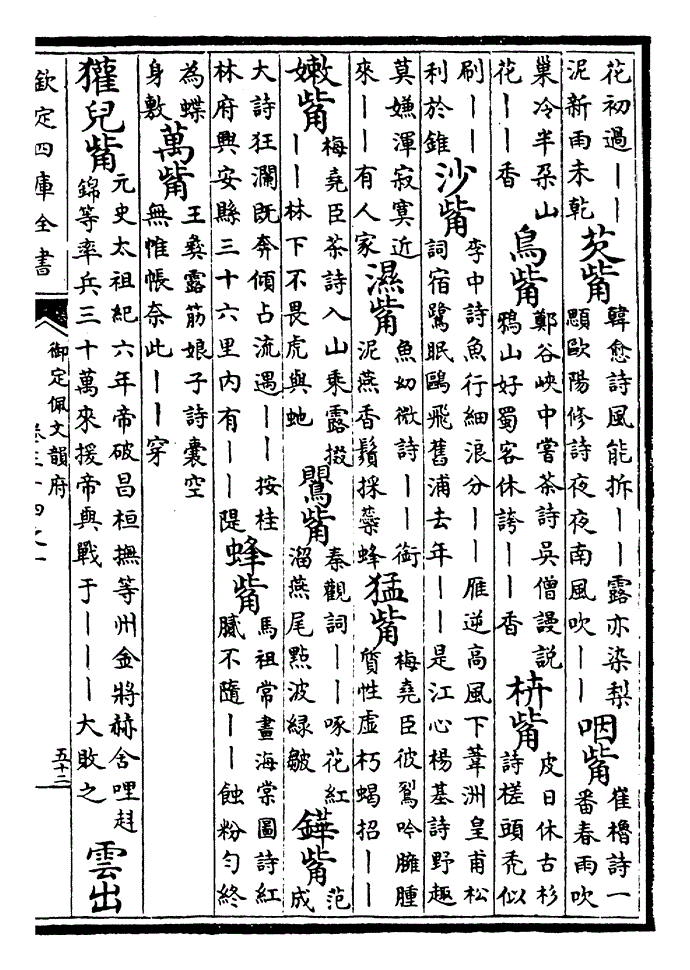 花初過――
泥新雨未乾
芡觜
韓愈詩風能拆――露亦染梨
顋歐陽修詩夜夜南風吹――
咽觜
崔櫓詩一
番春雨吹
巢冷半朶山
花――香
鳥觜
鄭谷峽中嘗茶詩吳僧謾說
鴉山好蜀客休誇――香
枿觜
皮日休古杉
詩槎頭禿似
刷――
利於錐
沙觜
李中詩魚行細浪分――雁逆高風下葦洲皇甫松
詞宿鷺眠鷗飛舊浦去年――是江心楊基詩野趣
莫嫌渾寂寞近
來――有人家
濕觜
魚幼微詩――銜
泥燕香鬚採蘂蜂
猛觜
梅堯臣彼鴷吟臃腫
質性虛朽蝎招――
嫩觜
梅堯臣茶詩入山乘露掇
――林下不畏虎與虵
鸎觜
秦觀詞――啄花紅
溜燕尾點波綠皺
鏵觜
范
成
大詩狂瀾既奔傾占流遏――按桂
林府興安縣三十六里內有――隄
蜂觜
馬祖常畫海棠圖詩紅
膩不隨――蝕粉勻終
為蝶
身敷
萬觜
王彝露筋娘子詩囊空
無帷帳奈此――穿
玃兒觜
元史太祖紀六年帝破昌桓撫等州金將赫舍哩
錦等率兵三十萬來援帝與戰于―――大敗之
雲出
欽定四庫全書
御定佩文韻府
卷三十四之一
五十二